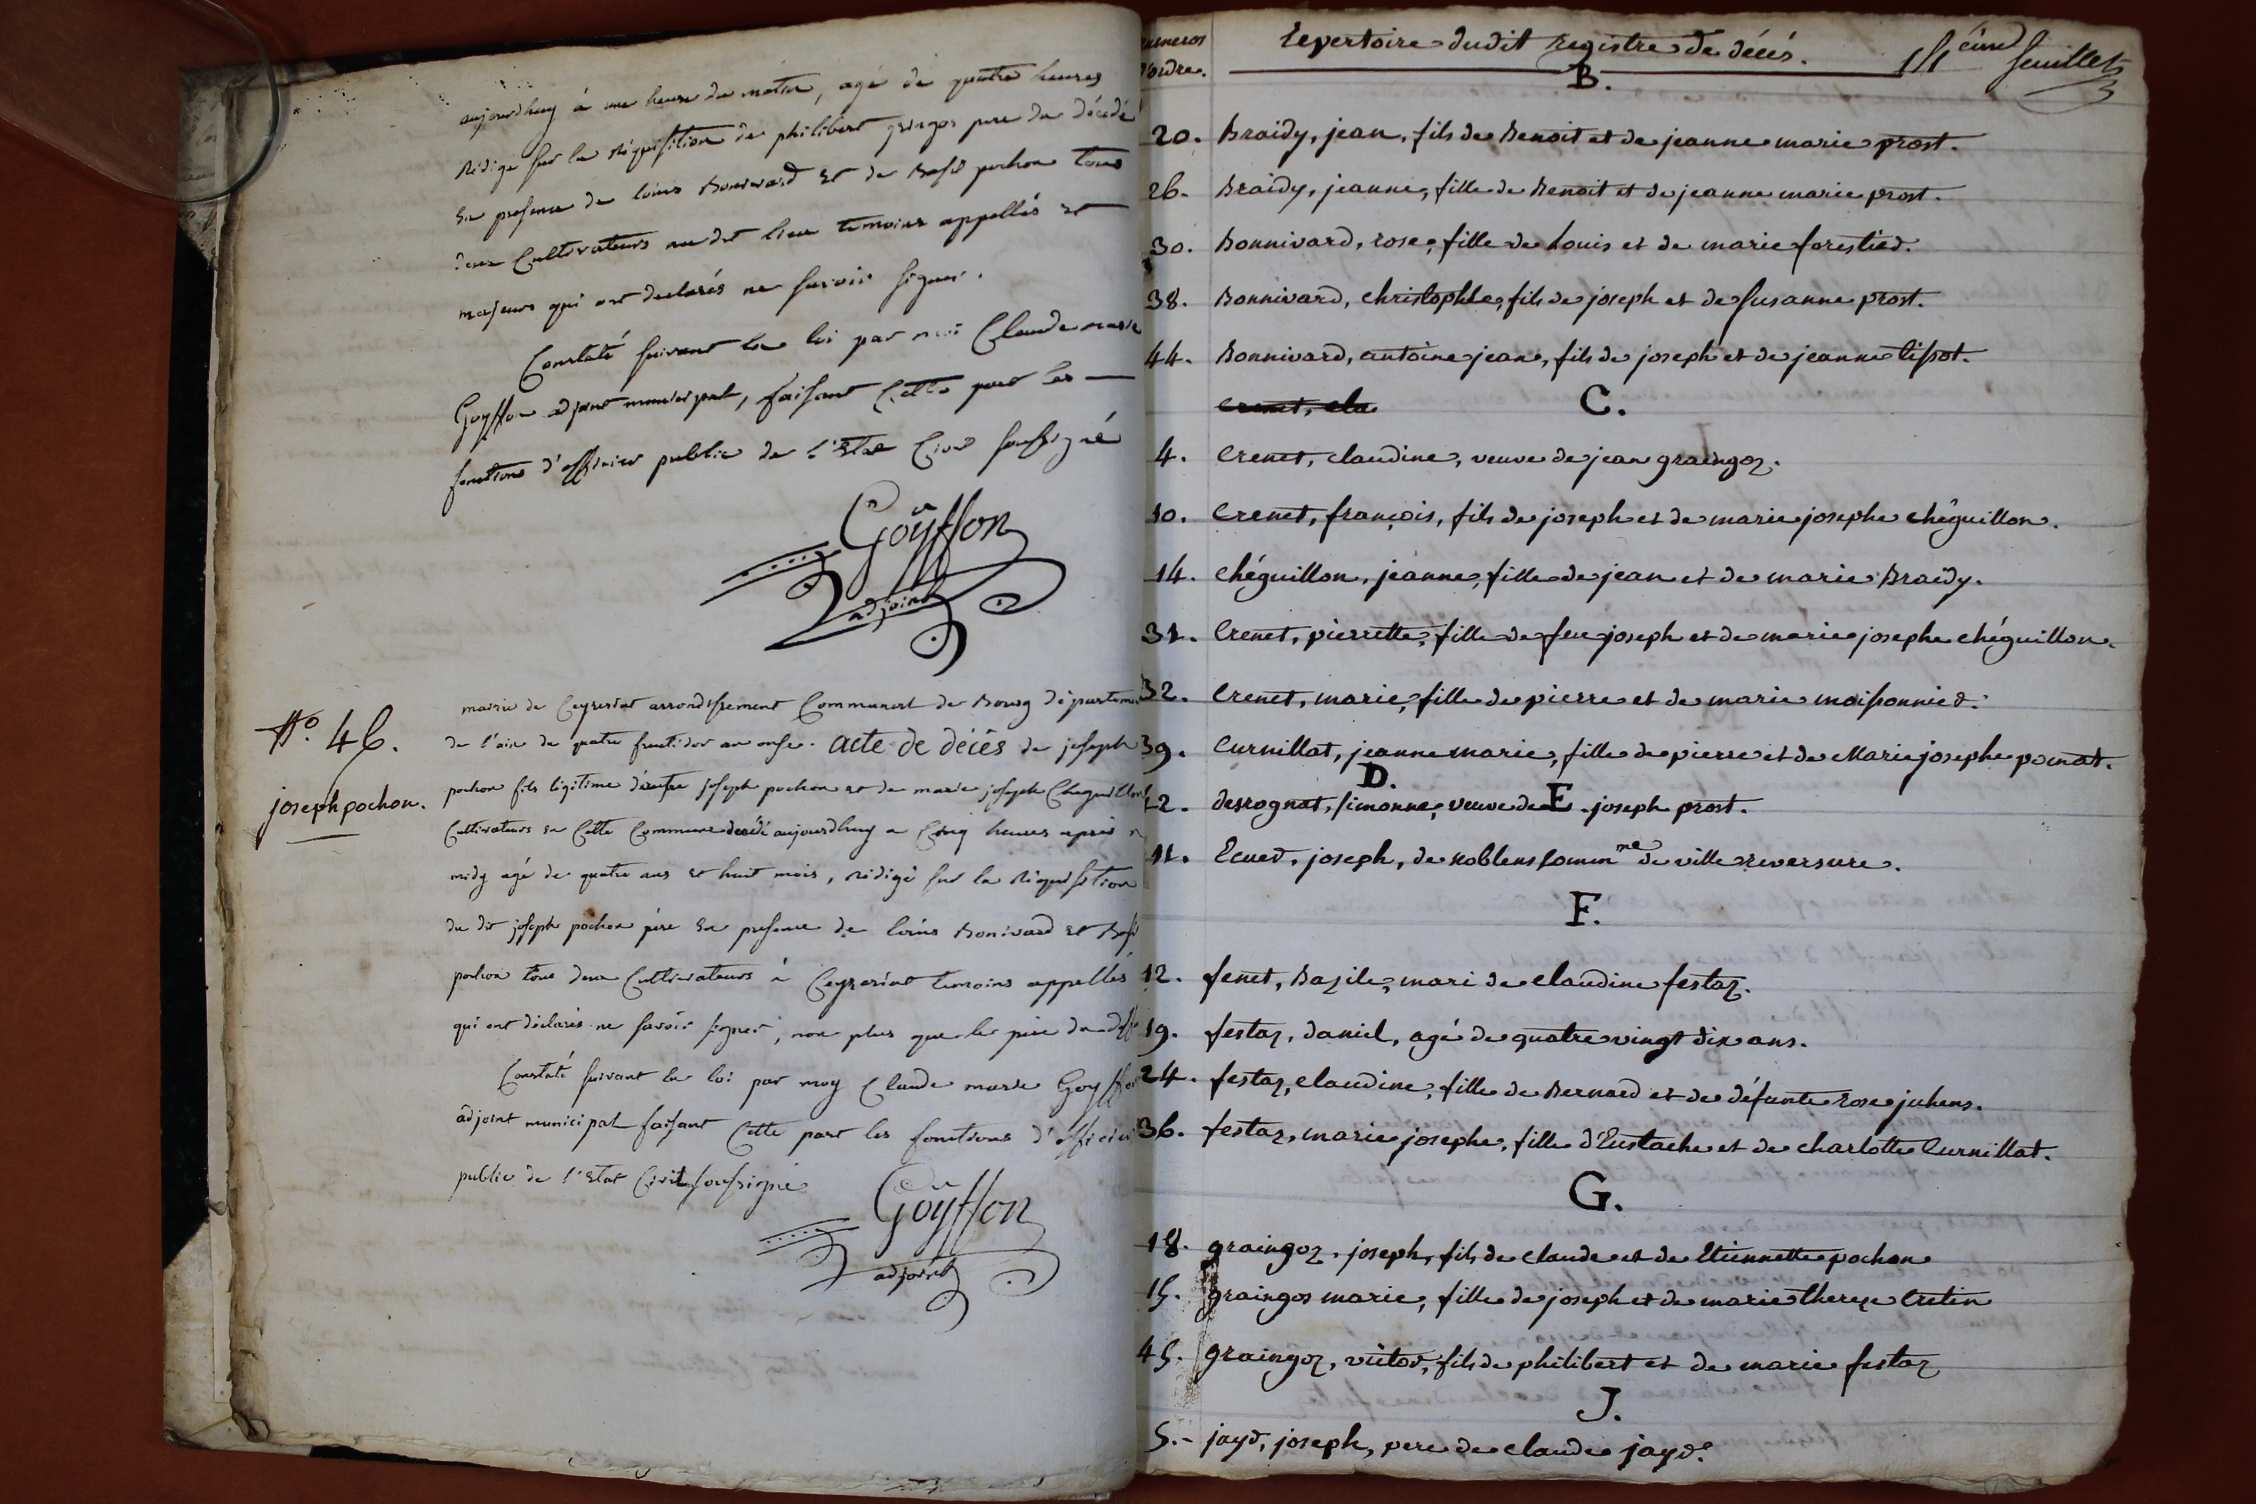 aujourdhuy à une heure du matin, agé de quatre heures
Rédigé sur la Réquisition de philibert graingos pere du décedé
En presence de loüis Bonivard Et de Basile pochon tous
deux Cultivateurs au dit lieu temoins appellés et
majeurs qui ont declarés ne savoir signer.
Constaté suivant la loi par moi Claude marie
Goyffon adjoint municipal, faisant Cette part les
fonctions d'officier public de l'Etat Civil soussigné
Goÿffon
adjoint
N.° 46.
joseph pochon.
mairie de Ceyzeriat arrondissement Communal de Bourg département
de l'ain du quatre fructidor an onze. acte de décès de joseph
pochon fils légitime d'entre joseph pochon et de marie joseph Cheguillon
Cultivateurs En Cette Commune decédé aujourdhuy a Cinq heures après
midy agé de quatre ans et huit mois, rédigé sur la Réquisition
du dit joseph pochon père En presence de loüis Bonivard et
pochon tous deux Cultivateurs à Ceyzeriat temoins appellés
qui ont déclarés ne savoir signer, non plus que le père du
Constaté suivant la loi par moy Claude marie Goyffon
adjoint municipal faisant Cette part les fonctions d'officier
public de l'Etat Civil soussigné
Goÿffon
adjoint
numeros d'ordre.
Repertoire dudit registre de décés. feuillet
B.
20. Braidy, jean, fils de Benoit et de jeanne marie prost.
26. Braidy, jeanne, fille de Benoit et de jeanne marie prost.
30. Bonnivard, rose, fille de Louis et de marie forestier.
38. Bonnivard, christophle, fils de joseph et de susanne prost.
44. Bonnivard, antoine jean, fils de joseph et de jeanne tissot.
Crenet, cla
C.
4. Crenet, claudine, veuve de jean graingoz.
10. Crenet, françois, fils de joseph et de marie josephe chéguillon.
14. chéguillon, jeanne, fille de jean et de marie Braidy.
31. Crenet, pierrette, fille de feu joseph et de marie josephe chéguillon.
32. Crenet, marie, fille de pierre et de marie moissonnier.
39. Curnillat, jeanne marie, fille de pierre et de Marie josephe pomat.
D.
42. desrognat, simonne, veuve de joseph prost.
E.
11. Ecuer, joseph, de noblens comm.ne de ville reversure.
F.
12. fenet, Bazile, mari de claudine festaz.
19. festaz, daniel, agé de quatre vingt dix ans.
24. festaz, claudine, fille de Bernard et de défunte rose juhens.
36. festaz, marie josephe, fille d'Eustache et de charlotte Curnillat.
G.
18. graingoz, joseph, fils de claude et de Etiennette pochon
15. graingos marie, fille de joseph et de marie therese Cretin
45. graingoz, victor, fils de philibert et de marie festaz
J.
5. jayr, joseph, pere de claude jayr.